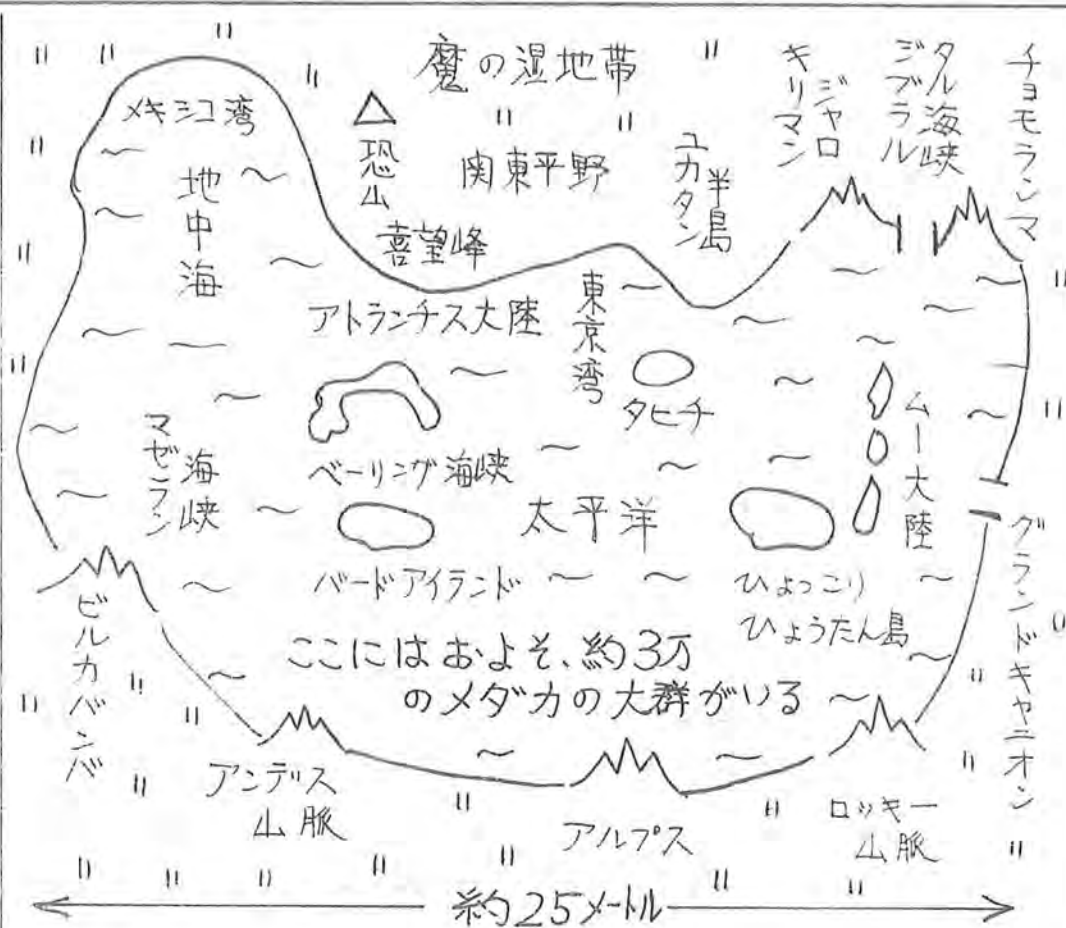 魔の湿地帯
メキシコ湾
恐山
関東平野
ユカタン
半島
キリマン
ジャロ
ジブラル
タル海峡
チョモランマ
地中海
喜望峰
アトランチス大陸
東京湾
タヒチ
ムー大陸
マゼラン
海峡
ベーリング海峡
太平洋
バードアイランド
ひょっこり
ひょうたん島
グランドキャニオン
ビルカバンバ
ここにはおよそ、約3万
のメダカの大群がいる
アンデス
山脈
アルプス
ロッキー
山脈
約25メートル